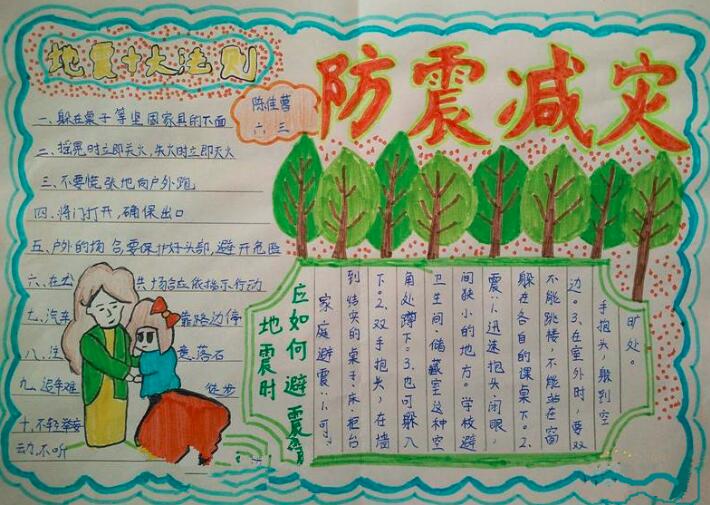 地震十大法则
防震减灾
陈佳蓉
六 三
一、躲在桌子等坚固家具的下面
二、摇晃时立即关火,失火时立即灭火
三、不要慌张地向户外跑
四、将门打开,确保出口
五、户外的场合要保护好头部,避开危险
六、在公共场合应依指示行动
七、汽车 靠路边停
八、注 意落石
九、避难 徒步
十、不轻举妄
动,不听
地震时
应如何避震
家庭避震:1.可
到结实的桌子、床、柜台
下2.双手抱头,在墙
角处蹲下。3.也可躲入
卫生间、储藏室这种空
间狭小的地方。学校避
震:1.迅速抱头、闭眼,
躲在各自的课桌下。2.
不能跳楼,不能站在窗
边。3.在室外时,要双
手抱头,躲到空
旷处。